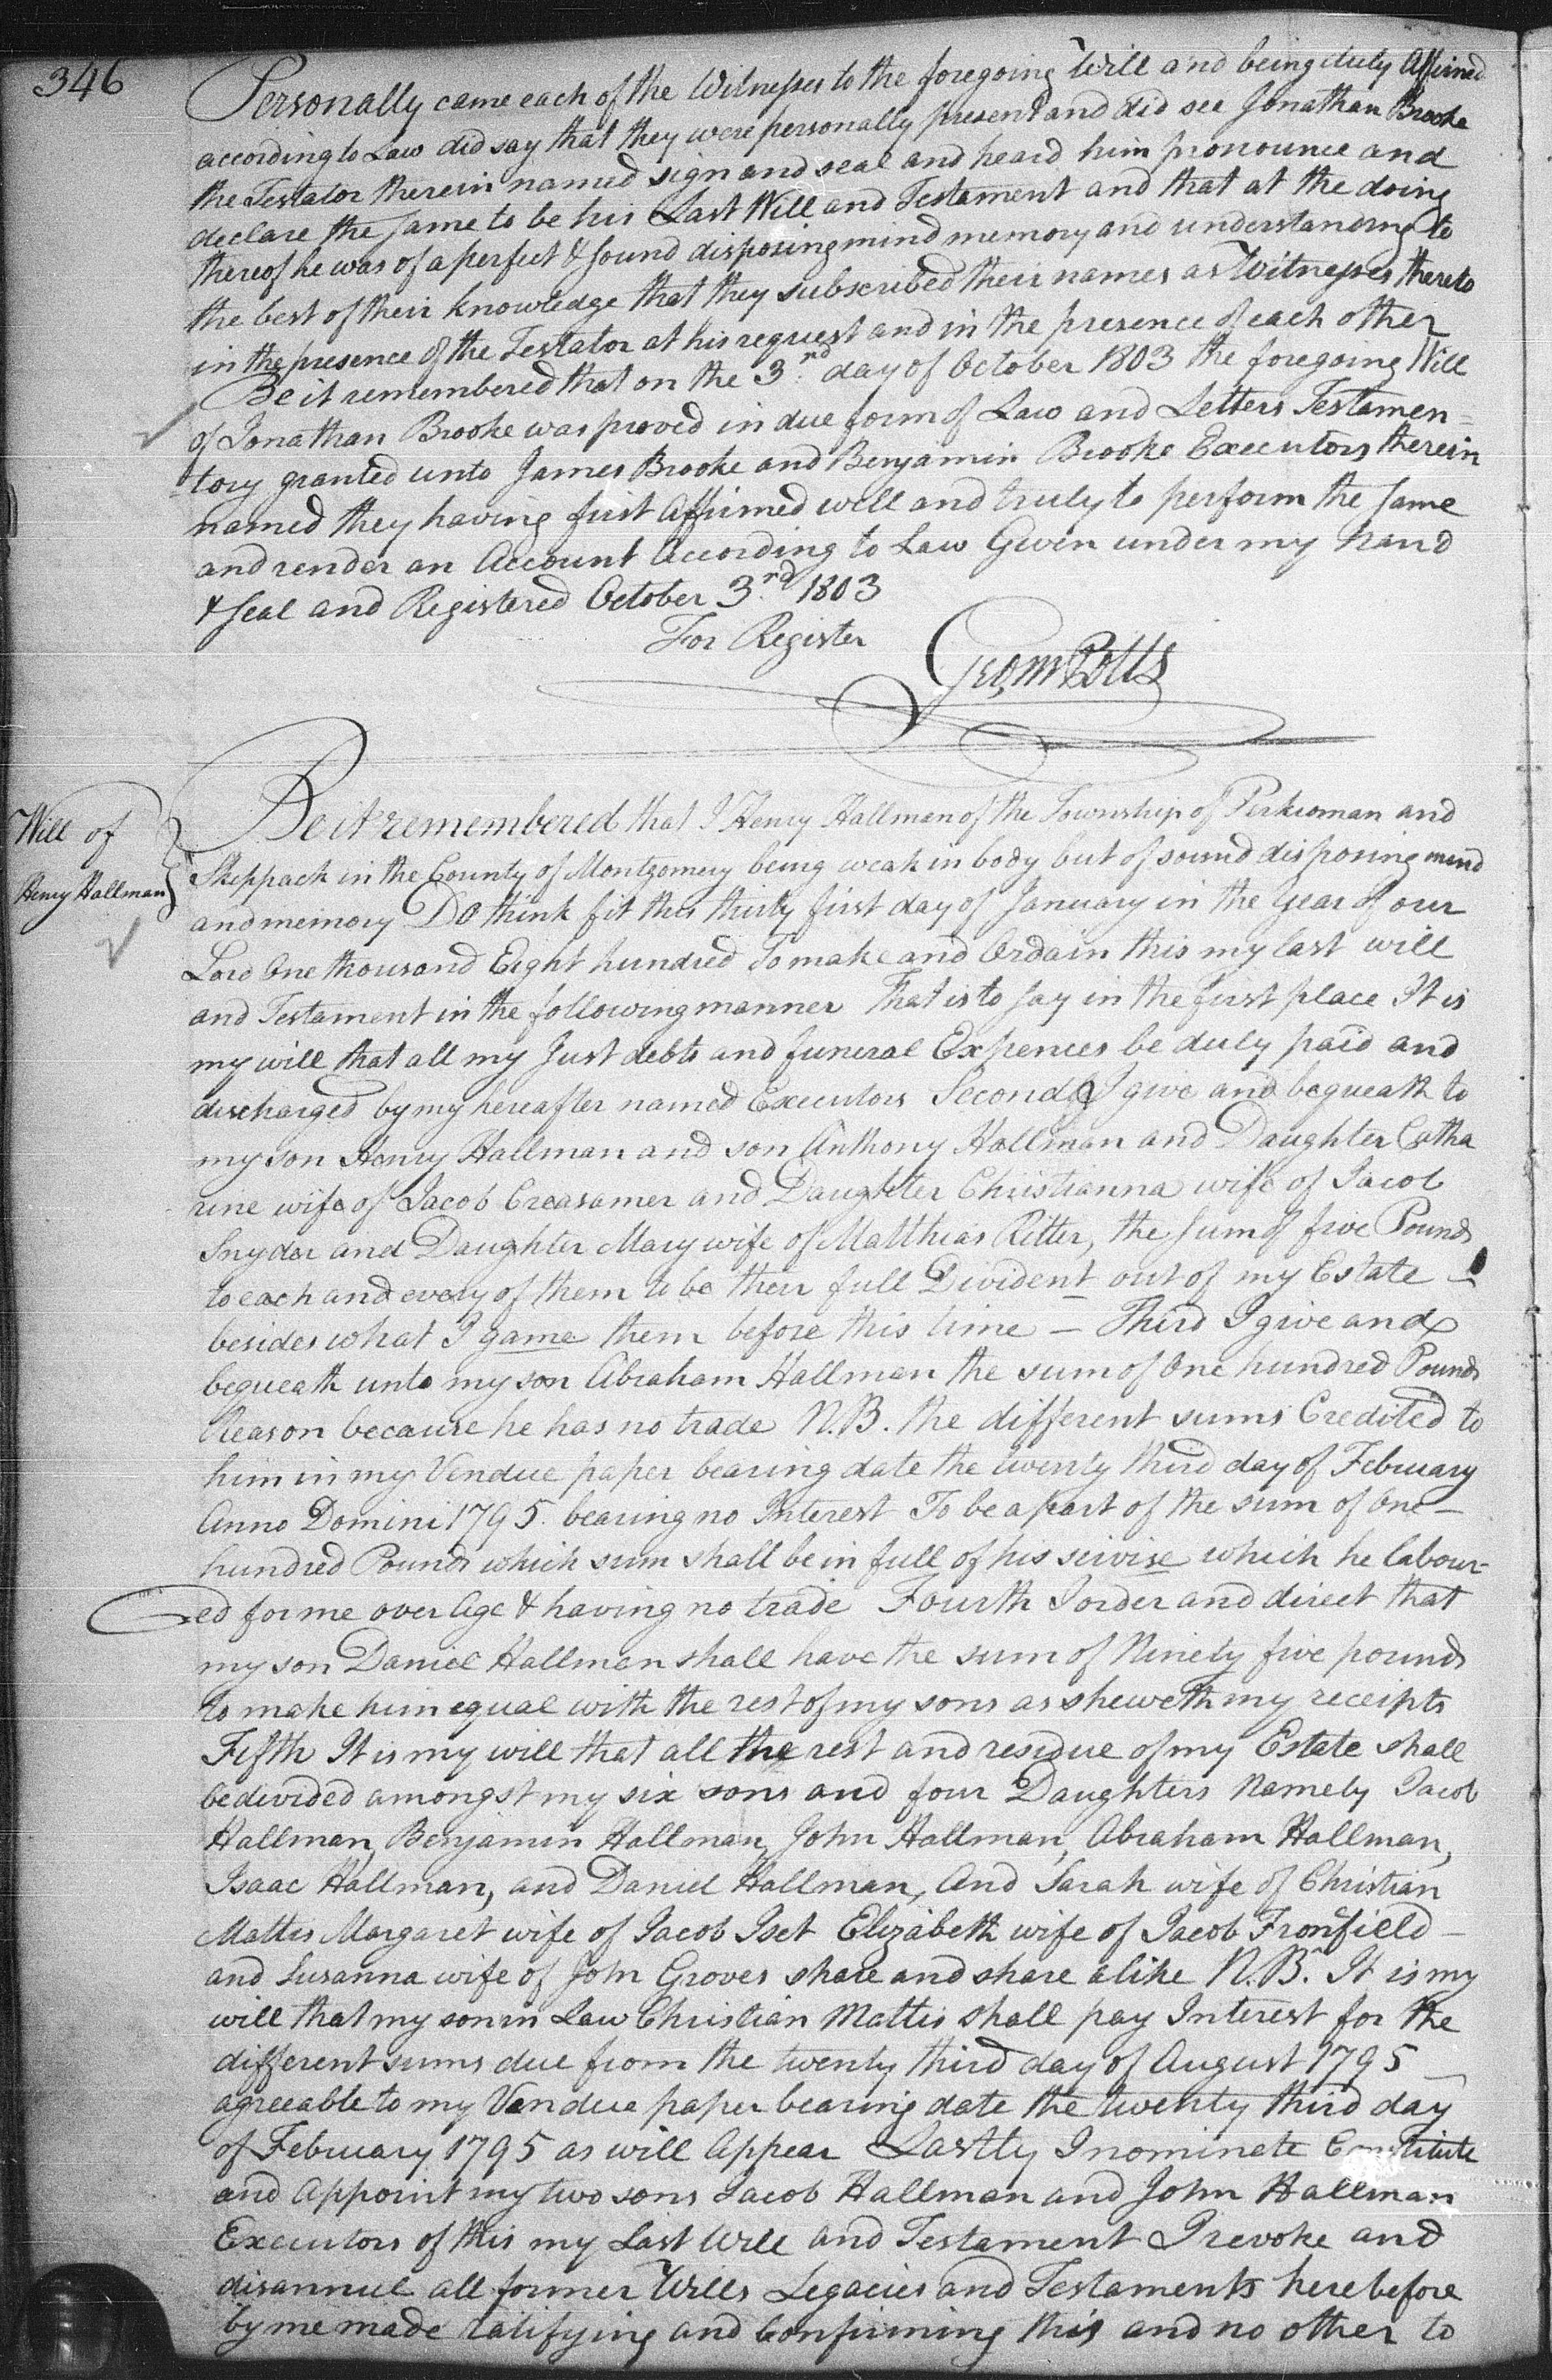 346
Personally came each of the Witnesses to the foregoing Will and being duly Affirmed
according to Law did say that they were personally present and did see Jonathan Brooke
the Testator therein named sign and seal and heard him pronounce and
declare the same to be his Last Will and Testament and that at the doing
thereof he was of a perfect & sound disposing mind memory and understanding to
the best of their knowledge that they subscribed their names as Witnesses thereto
in the presence of the Testator at his request and in the presence of each other
Be it remembered that on the 3rd day of October 1803 the foregoing Will
of Jonathan Brooke was proved in due form of Law and Letters Testamen=
=tory granted unto James Brooke and Benjamin Brooke Executors therein
named they having first Affirmed well and truly to perform the same
and render an Account According to Law Given under my hand
& seal and Registered October 3rd 1803
For Register
Geo, m Potts
Will of
Henry Hallman
Be it remembered that I Henry Hallman of the Township of Perkioman and
Skippack in the County of Montgomery being weak in body but of sound disposing mind
and memory Do think fit this thirty first day of January in the Year of our
Lord One thousand Eight hundred To make and Ordain this my last will
and Testament in the following manner That is to say in the first place It is
my will that all my Just debts and funeral Expences be duly paid and
discharged by my hereafter named Executors Secondly I give and bequeath to
my son Henry Hallman and son Anthony Hallman and Daughter Catha
rine wife of Jacob Creasamer and Daughter Christianna wife of Jacob
Snyder and Daughter Mary wife of Matthias Ritter, the sum of five Pounds
to each and every of them to be their full Divident out of my Estate —
besides what I game them before this time — Third I give and
bequeath unto my son Abraham Hallman the sum of One hundred Pounds
Reason because he has no trade N.B. the different sums Credited to
him in my Vendue paper bearing date the twenty third day of February
Anno Domini 1795 bearing no Interest To be a part of the sum of One —
hundred Pounds which sum shall be in full of his servise which he labour-
ed for me over Age & having no trade Fourth I order and direct that
my son Daniel Hallman shall have the sum of Ninety five pounds
to make him equal with the rest of my sons as sheweth my receipts
Fifth It is my will that all the rest and residue of my Estate shall
be divided amongst my six sons and four Daughters Namely Jacob
Hallman, Benjamin Hallman, John Hallman, Abraham Hallman,
Isaac Hallman, and Daniel Hallman, And Sarah wife of Christian
Mattis Margaret wife of Jacob Iset Elizabeth wife of Jacob Fronfield —
and Susanna wife of John Groves share and share alike N.B. It is my
will that my son in Law Christian Mattis shall pay Interest for the
different sums due from the twenty third day of August 1795 —
agreeable to my Vendue paper bearing date the twenty third day
of February 1795 as will Appear Lastly I nominate Constitute
and Appoint my two sons Jacob Hallman and John Hallman
Executors of this my Last Will and Testament I revoke and
disannul all former Wills Legacies and Testaments herebefore
by me made ratifying and Confirming this and no other to